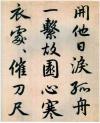 開他日淚孤舟
一繫故園心寒
衣處處催刀尺